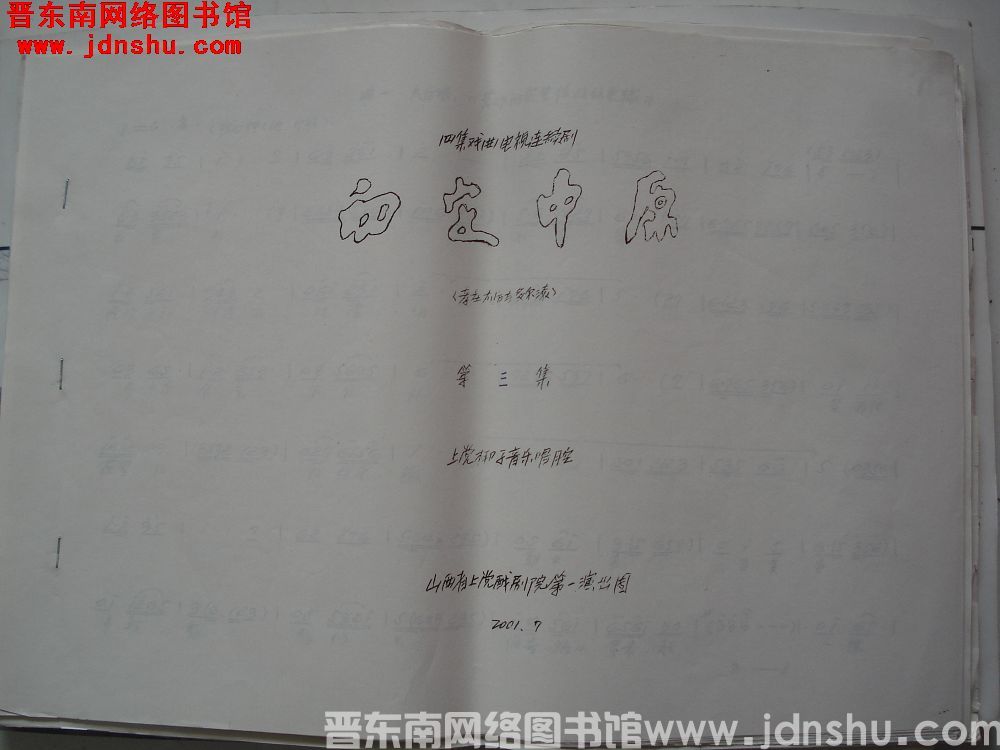 晋东南网络图书馆
www.jdnshu.com
四集戏曲电视连续剧
初定中原
第三集
上党梆子音乐唱腔
山西省上党戏剧院第一演出团
2001.7
晋东南网络图书馆www.jdnshu.com